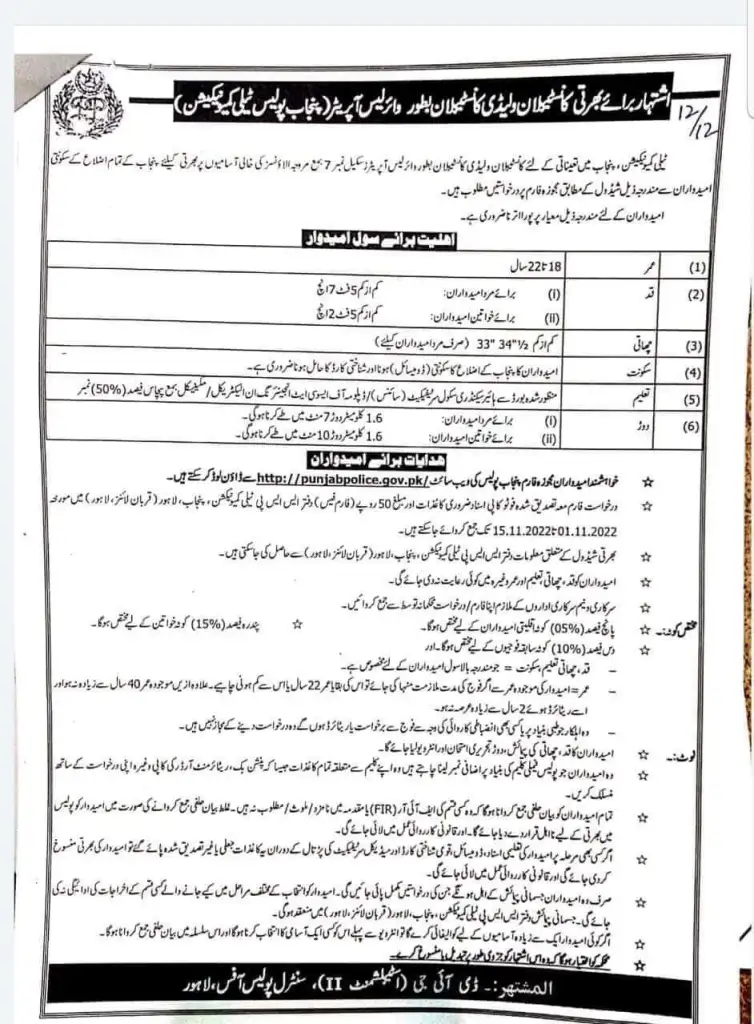 اشتہار برائے بھرتی کانسٹیبلان ولیڈی کانسٹیبلان بطور وائرلیس آپریٹر (پنجاب پولیس ٹیلی کمیونیکیشن)
12/12
ٹیلی کمیونیکیشن، پنجاب میں تعیناتی کے لئے کانسٹیبلان ولیڈی کانسٹیبلان بطور وائرلیس آپریٹرز سکیل نمبر 7 بمع مروجہ الاؤنسز کی خالی آسامیوں پر بھرتی کیلئے پنجاب کے تمام اضلاع کے سکونتی
امیدواران سے مندرجہ ذیل شیڈول کے مطابق مجوزہ فارم پر درخواستیں مطلوب ہیں۔
امیدواران کے لئے مندرجہ ذیل معیار پر پورا اترنا ضروری ہے۔
اھلیت برائے سول امیدوار
(1) عمر 18 تا 22 سال
(2) قد (i) برائے مرد امیدواران: کم از کم 5 فٹ 7 انچ
(ii) برائے خواتین امیدواران: کم از کم 5 فٹ 2 انچ
(3) چھاتی کم از کم 33" 34" ½ (صرف مرد امیدواران کیلئے)
(4) سکونت امیدواران کا پنجاب کے اضلاع کا سکونتی (ڈومیسائل) ہونا اور شناختی کارڈ کا حامل ہونا ضروری ہے۔
(5) تعلیم منظور شدہ بورڈ سے ہائیر سیکنڈری سکول سرٹیفکیٹ (سائنس) / ڈپلومہ آف ایسوسی ایٹ انجینئرنگ ان الیکٹریکل / مکینیکل بمع پچاس فیصد (50%) نمبر
(6) دوڑ (i) برائے مرد امیدواران: 1.6 کلومیٹر دوڑ 7 منٹ میں طے کرنا ہوگی۔
(ii) برائے خواتین امیدواران: 1.6 کلومیٹر دوڑ 10 منٹ میں طے کرنا ہوگی۔
ھدایات برائے امیدواران
☆ خواہشمند امیدواران مجوزہ فارم پنجاب پولیس کی ویب سائٹ http://punjabpolice.gov.pk/ سے ڈاؤن لوڈ کر سکتے ہیں۔
☆ درخواست فارم معہ تصدیق شدہ فوٹو کاپی اسناد ضروری کاغذات اور مبلغ 50 روپے (فارم فیس) دفتر ایس ایس پی ٹیلی کمیونیکیشن، پنجاب، لاہور (قربان لائنز، لاہور) میں مورخہ
01.11.2022 تا 15.11.2022 تک جمع کروائے جا سکتے ہیں۔
☆ بھرتی شیڈول کے متعلق معلومات دفتر ایس ایس پی ٹیلی کمیونیکیشن، پنجاب، لاہور (قربان لائنز، لاہور) سے حاصل کی جا سکتی ہیں۔
☆ امیدواران کو قد، چھاتی، تعلیم اور عمر وغیرہ میں کوئی رعایت نہ دی جائے گی۔
☆ سرکاری و نیم سرکاری اداروں کے ملازم اپنا فارم / درخواست محکمانہ توسط سے جمع کروائیں۔
مختص کوٹہ:۔ ☆ پانچ فیصد (05%) کوٹہ اقلیتی امیدواران کے لیے مختص ہوگا۔ ☆ پندرہ فیصد (15%) کوٹہ خواتین کے لیے مختص ہوگا۔
☆ دس فیصد (10%) کوٹہ سابقہ فوجیوں کے لیے مختص ہوگا۔ اور
- قد، چھاتی، تعلیم، سکونت = جو مندرجہ بالا سول امیدواران کے لئے مخصوص ہے۔
- عمر = امیدوار کی موجودہ عمر سے اگر فوج کی مدت ملازمت منہا کی جائے تو اس کی بقایا عمر 22 سال یا اس سے کم ہونی چاہیے۔ علاوہ ازیں موجودہ عمر 40 سال سے زیادہ نہ ہو اور
اسے ریٹائرڈ ہوئے 2 سال سے زیادہ عرصہ نہ ہو۔
- وہ اہلکار جو طبی بنیاد پر یا کسی بھی انضباطی کاروائی کی وجہ سے فوج سے برخواست یا ریٹائرڈ ہوں گے وہ درخواست دینے کے مجاز نہیں ہیں۔
نوٹ:۔ ☆ امیدواران کا قد، چھاتی کی پیمائش، دوڑ، تحریری امتحان اور انٹرویو لیا جائے گا۔
☆ وہ امیدواران جو پولیس فیملی کلیم کی بنیاد پر اضافی نمبر لینا چاہتے ہیں وہ اپنے کلیم سے متعلقہ تمام کاغذات جیسا کہ پنشن بک، ریٹائرمنٹ آرڈر کی کاپی وغیرہ اپنی درخواست کے ساتھ
منسلک کریں۔
☆ تمام امیدواران کو بیان حلفی جمع کروانا ہوگا کہ وہ کسی قسم کی ایف آئی آر (FIR) یا مقدمہ میں نامزد / ملوث / مطلوب نہ ہیں۔ غلط بیان حلفی جمع کروانے کی صورت میں امیدوار کو پولیس
میں بھرتی کے لیے نااہل قرار دے دیا جائے گا۔ اور قانونی کارروائی عمل میں لائی جائے گی۔
☆ اگر کسی بھی مرحلہ پر امیدوار کی تعلیمی اسناد، ڈومیسائل، قومی شناختی کارڈ اور میڈیکل سرٹیفکیٹ کی پڑتال کے دوران یہ کاغذات جعلی یا غیر تصدیق شدہ پائے گئے تو امیدوار کی بھرتی منسوخ
کر دی جائے گی اور قانونی کارروائی عمل میں لائی جائے گی۔
☆ صرف وہ امیدواران جسمانی پیمائش کے اہل ہونگے جن کی درخواستیں مکمل پائی جائیں گی۔ امیدوار کو انتخاب کے مختلف مراحل میں کیے جانے والے کسی قسم کے اخراجات کی ادائیگی نہ کی
جائے گی۔ جسمانی پیمائش دفتر ایس ایس پی ٹیلی کمیونیکیشن، پنجاب، لاہور (قربان لائنز، لاہور) میں منعقد ہوگی۔
☆ اگر کوئی امیدوار ایک سے زیادہ آسامیوں کے لیے کوالیفائی کرے گا تو انٹرویو سے پہلے اس کو کسی ایک آسامی کا انتخاب کرنا ہوگا اور اس سلسلہ میں بیان حلفی جمع کروانا ہوگا۔
☆ محکمہ کو اختیار ہوگا کہ وہ اس اشتہار کو جزوی طور پر تبدیل یا منسوخ کرے۔
المشتہر:۔ ڈی آئی جی (اسٹیبلشمنٹ II)، سنٹرل پولیس آفس، لاہور